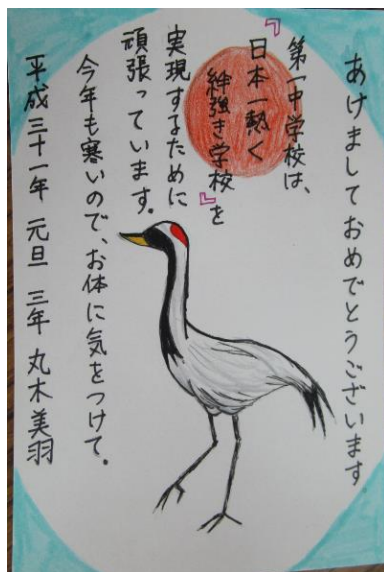 あけましておめでとうございます
第一中学校は、
『日本一熱く
絆強き学校』を
実現するために
頑張っています。
今年も寒いので、お体に気をつけて。
平成三十一年 元旦 三年 丸木美羽